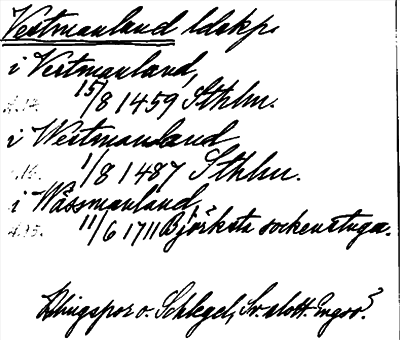 Vestmanland ldskp.
i Vestmanland,
15/8 1459 Sthlm.
i Westmanland
1/8 1487 Sthlm.
i Wässmanland,
11/6 1711 Björksta sockenstuga.
Klingspor o. Schlegel, Sv. slott. Engsö.